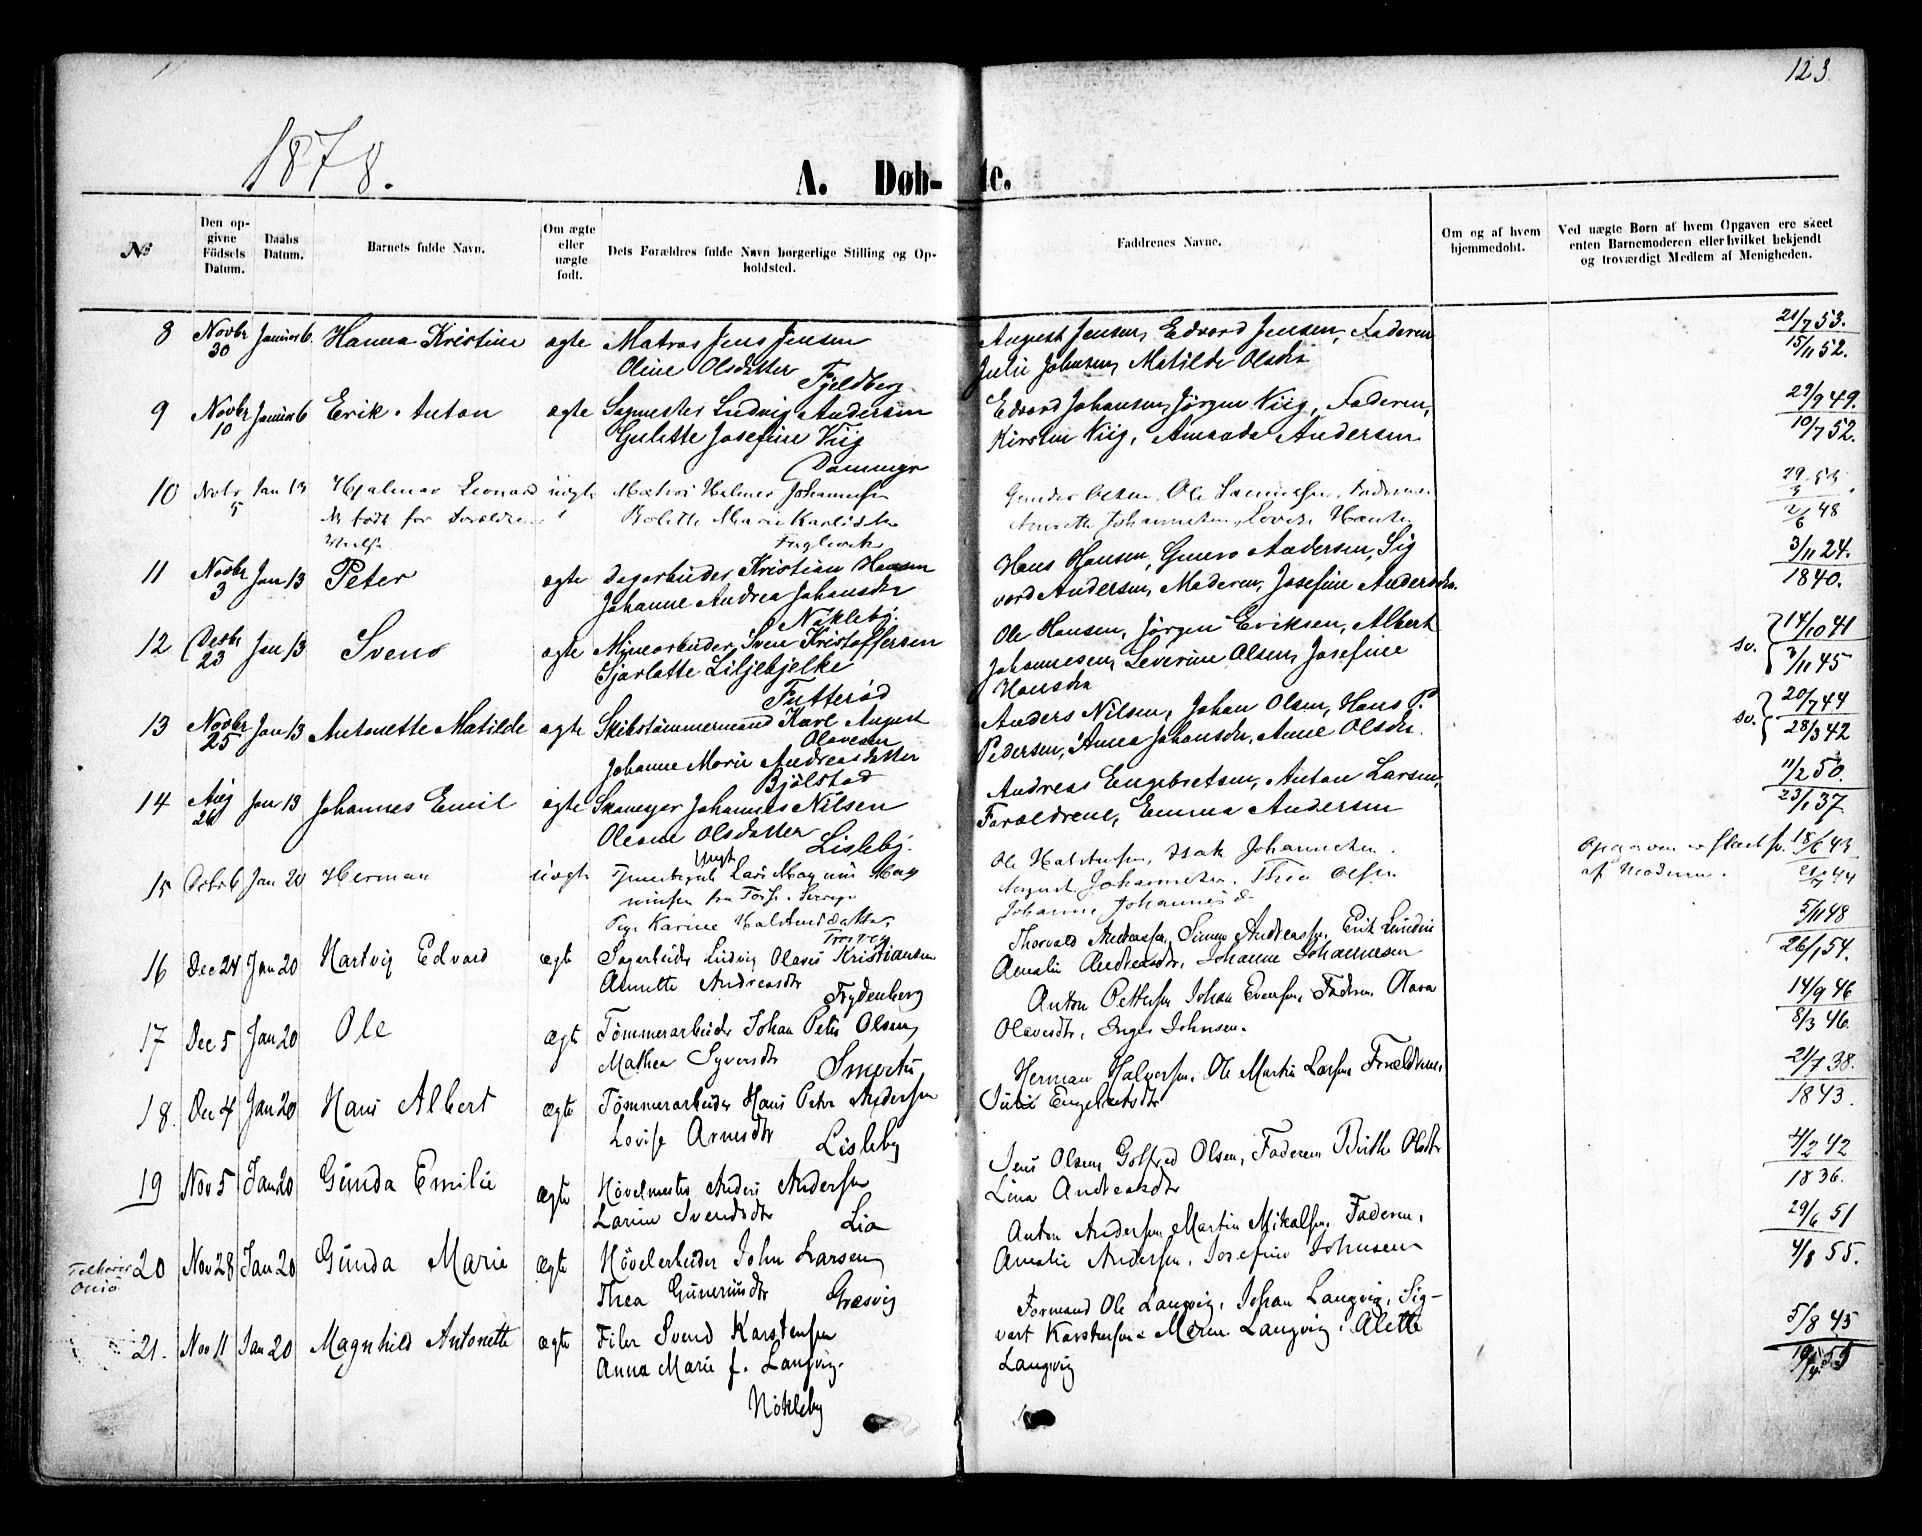 123
1878.
A. Døb-te.
№
Den op-
givne
Födsels
Datum.
Daabs
Datum.
Barnets fulde Navn.
Om ægte
eller
uægte
født.
Dets Forældres fulde Navn borgerlige Stilling og Op-
holdsted.
Faddrenes Navne.
Om og af hvem
hjemmedøbt.
Ved uægte Børn af hvem Opgaven ere skeet
enten Barnemoderen eller hvilket bekjendt
og troværdigt Medlem af Menigheden.
8 Novbr 30 Januar 6. Hanna Kristine ægte Matros Jens Jensen August Jensen, Edvard Jensen, Faderen 21/7 53.
Oline Olsdatter Fjeldberg Julie Johnsen, Matilde Olsdtr 15/11 52.
9 Novbr 10 Januar 6 Erik Anton ægte Sagmester Ludvig Andersen Edvard Johansen, Jørgen Viig, Faderen, 29/9 49.
Gulette Josefine Viig Kirsten Viig, Amanda Andersen 10/7 52.
Dammyr
10 Novbr 5 Jan 13 Hjalmar Leonard uægte Matros Halmer Johannesen Ole Faderen 29/3 53
født for Forældrene Bolette Marie Karlsdtr Johannesen, Lovise 2/6 48
Fuglevik
11 Novbr 3 Jan 13 Peter ægte Dagarbeider Kristian Hansen Hans Hansen, Andersen, Sig 3/11 24.
Johanne Andrea Johansdtr vard Andersen, Moderen, Josefine Andersdtr. 1840.
Nøkleby.
12 Decbr 23 Jan 13 Svend ægte Svend Kristoffersen Ole Hansen, Jørgen Eriksen, Albert sv. 14/10 41
Sjarlotte Liljehjelke Johannesen, Severine Olsen, Josefine 2/11 45
Futterød Hansdtr
13 Novbr 25 Jan 13 Antonette Matilde ægte Skibstømmermand Karl August Anders Nilsen, Johan Olsen, Hans P. sv. 20/7 44
Olavesen Pedersen, Anna Johansdtr, Anne Olsdtr. 28/3 42
Johanne Marie Andreasdatter
Bjølstad
14 Aug 26 Jan 13 Johannes Emil ægte Skomager Johannes Nilsen Andreas Engebretsen, Anton Larsen, 11/2 50.
Oleane Olsdatter Lisleby. Forældrene, Emma Andersen 23/1 37.
15 Jan 20 Herman uægte Ungk Lars Magnus Mag Ole Halvorsen, Isak Johannesen. Opgaven er skeet 18/6 43
nusen fra August Johannesen, Thea Olsen af Moderen. 21/7 44
Pige Karine Halvorsdatter Johanne Johannesd
16 Dec 24 Jan 20 Hartvig Edvard ægte Sagarbeider Ludvig Olaves Kristiansen Thorvald Andreassen, Simen Andreassen, Erik Lundin 5/11 48
Annette Andreasdtr Amalie Andreasdtr, Johanne Johannesen 26/1 54.
Frydenberg
17 Dec 5 Jan 20 Ole ægte Tømmerarbeider Johan Peter Olsen Anton Pettersen Johan Evensen, Faderen, Olava 14/9 46
Mathea Syversdtr Smertu Olavesdtr, Inger Johnsen. 8/3 46.
18. Dec 4 Jan 20 Hans Albert ægte Tømmerarbeider Hans Peter Andersen Herman Halvorsen, Ole Martin Larsen Forældrene, 21/7 38.
Lovise Arnesdtr Lisleby Julie Engebretsdtr 1843.
19 Nov 5 Jan 20 Gunda Emilie ægte Høvelmester Anders Andersen Jens Olsen, Golfred Olsen, Faderen Birthe Olsdtr 4/2 42
Larine Svendsdtr Lia Lina Andreasdtr 1836.
20 Nov 28 Jan 20 Gunda Marie ægte Høvlerbeider John Larsen Anton Andersen, Martin Mikalsen, Faderen, 29/6 51
Thea Gunerusdtr Græsvig Amalie Andersen, Josefine Johnsen 4/8 55.
21. Nov 11 Jan 20 Magnhild Antonette ægte Filer Svend Karstensen Formand Ole Langvig, Johan Langvig, Sig- 5/8 45
Anna Marie f. Langvig. vart Karstensen Maren Langvig, Alette 55
Nøkleby Langvig